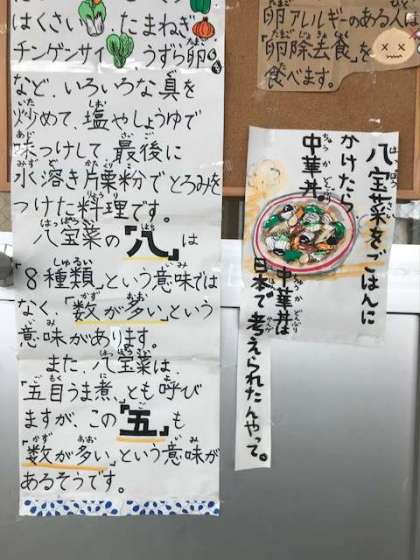 はくさい、たまねぎ
チンゲンサイ、うずら卵
など、いろいろな具を
炒めて、塩やしょうゆで
味つけして、最後に
水溶き片栗粉でとろみを
つけた料理です。
八宝菜の「八」は
「8種類」という意味では
なく、「数が多い」という
意味があります。
また、八宝菜は、
「五目うま煮」とも呼び
ますが、この「五」も
「数が多い」という意味が
あるそうです。
卵アレルギーのある人は
「卵除去食」を
食べます。
八宝菜をごはんに
かけたら
中華丼
中華丼は
日本で考えられたんやって。